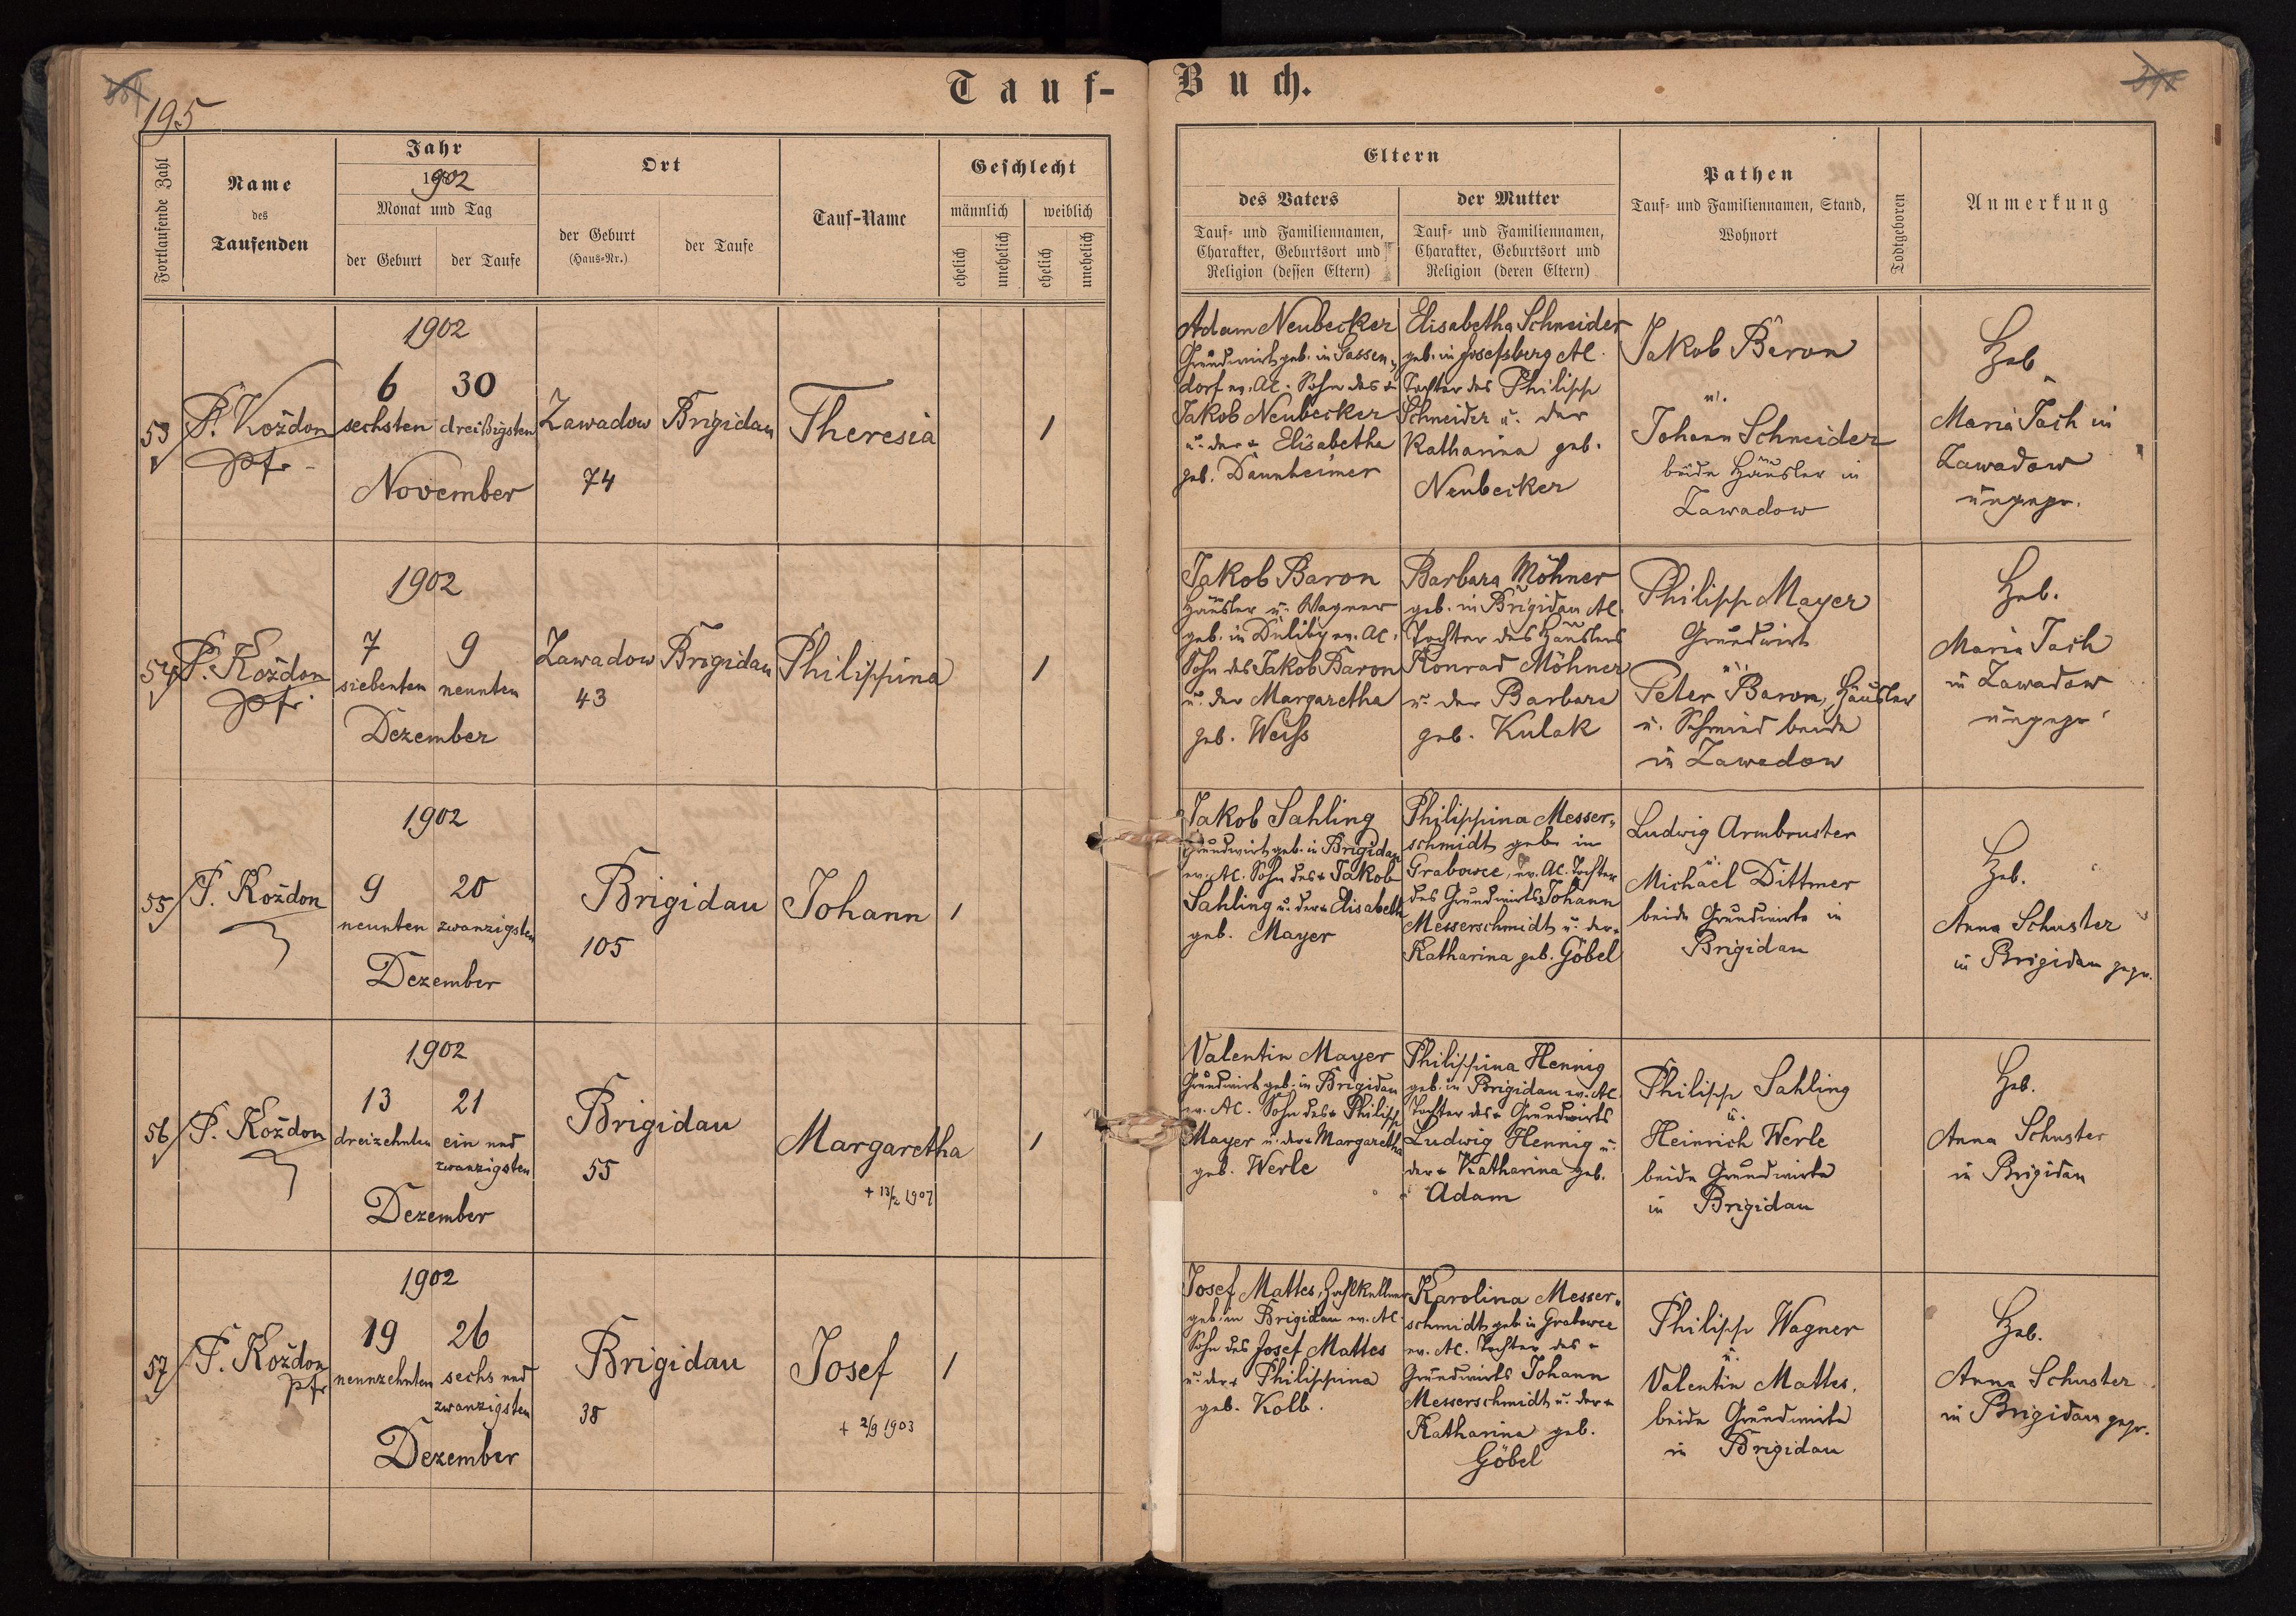 Tauf-Buch.
195
Fortlaufende Zahl
Name
des
Taufenden
Jahr
1902
Monat und Tag
der Geburt
der Taufe
Ort
der Geburt
(Haus-Nr.)
der Taufe
Tauf-Name
Geschlecht
männlich
weiblich
ehelich
unehelich
ehelich
unehelich
Eltern
des Vaters
Tauf- und Familiennamen,
Charakter, Geburtsort und
Religion (dessen Eltern)
der Mutter
Tauf- und Familiennamen,
Charakter, Geburtsort und
Religion (deren Eltern)
Pathen
Tauf- und Familiennamen, Stand,
Wohnort
Todtgeboren
Anmerkung
53
P. Kożdon
Pfr
1902
6 30
sechsten dreißigsten
November
Zawadow
74
Brigidau
Theresia
1
Adam Neubecker
Grundwirt geb. in Gassen-
dorf ev. AC. Sohn des +
Jakob Neubecker
u. der + Elisabetha
geb. Dannheimer
Elisabetha Schneider
geb. in Josefsberg AC.
Tochter des Philipp
Schneider u. der
Katharina geb.
Neubecker
Jakob Baron
u.
Johann Schneider
beide Häusler in
Zawadow
Heb
Maria Tach in
Zawadow
ungepr.
54
P. Kożdon
Pfr.
1902
7 9
siebenten neunten
Dezember
Zawadow
43
Brigidau
Philippina
1
Jakob Baron
Häusler u. Wagner
geb. in Duliby ev. AC.
Sohn des Jakob Baron
u. der Margaretha
geb. Weiss
Barbara Möhner
geb. in Brigidau AC.
Tochter des Häuslers
Konrad Möhner
u. der Barbara
geb. Kulak
Philipp Mayer
Grundwirt
u.
Peter Baron, Häusler
u. Schmied beide
in Zawadow
Heb.
Maria Tach
in Zawadow
ungepr.
55
P. Kożdon
1902
9 20
neunten zwanzigsten
Dezember
Brigidau
105
Johann
1
Jakob Sahling
Grundwirt geb. in Brigidau
ev. AC. Sohn des + Jakob
Sahling u. der + Elisabeth
geb. Mayer
Philippina Messer-
schmidt geb. in
Grabowce, ev. AC. Tochter
des Grundwirts Johann
Messerschmidt u. der +
Katharina geb. Göbel
Ludwig Armbruster
u.
Michael Dittmer
beide Grundwirte in
Brigidau
Heb.
Anna Schuster
in Brigidau gepr.
56
P. Kożdon
1902
13 21
dreizehnten ein und
zwanzigsten
Dezember
Brigidau
55
Margaretha
+ 13/2 1907
1
Valentin Mayer
Grundwirt geb. in Brigidau
ev. AC. Sohn des + Philipp
Mayer u. der + Margaretha
geb. Werle
Philippina Hennig
geb. in Brigidau ev. AC
Tochter des + Grundwirts
Ludwig Hennig u.
der + Katharina geb.
Adam
Philipp Sahling
u.
Heinrich Werle
beide Grundwirte
in Brigidau
Heb.
Anna Schuster
in Brigidau
57
P. Kożdon
Pfr
1902
19 26
neunzehnten sechs und
zwanzigsten
Dezember
Brigidau
38
Josef
+ 2/9 1903
1
Josef Mattes, Zahlkellner
geb. in Brigidau ev. AC.
Sohn des Josef Mattes
u. der + Philippina
geb. Kolb.
Karolina Messer-
schmidt geb. in Grabowce
ev. AC. Tochter des +
Grundwirts Johann
Messerschmidt u. der +
Katharina geb.
Göbel
Philipp Wagner
u.
Valentin Mattes.
beide Grundwirte
in Brigidau
Heb.
Anna Schuster
in Brigidau gepr.